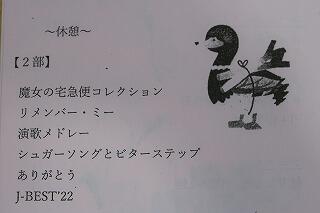 ～休憩～
【２部】
魔女の宅急便コレクション
リメンバー・ミー
演歌メドレー
シュガーソングとビターステップ
ありがとう
J-BEST'22